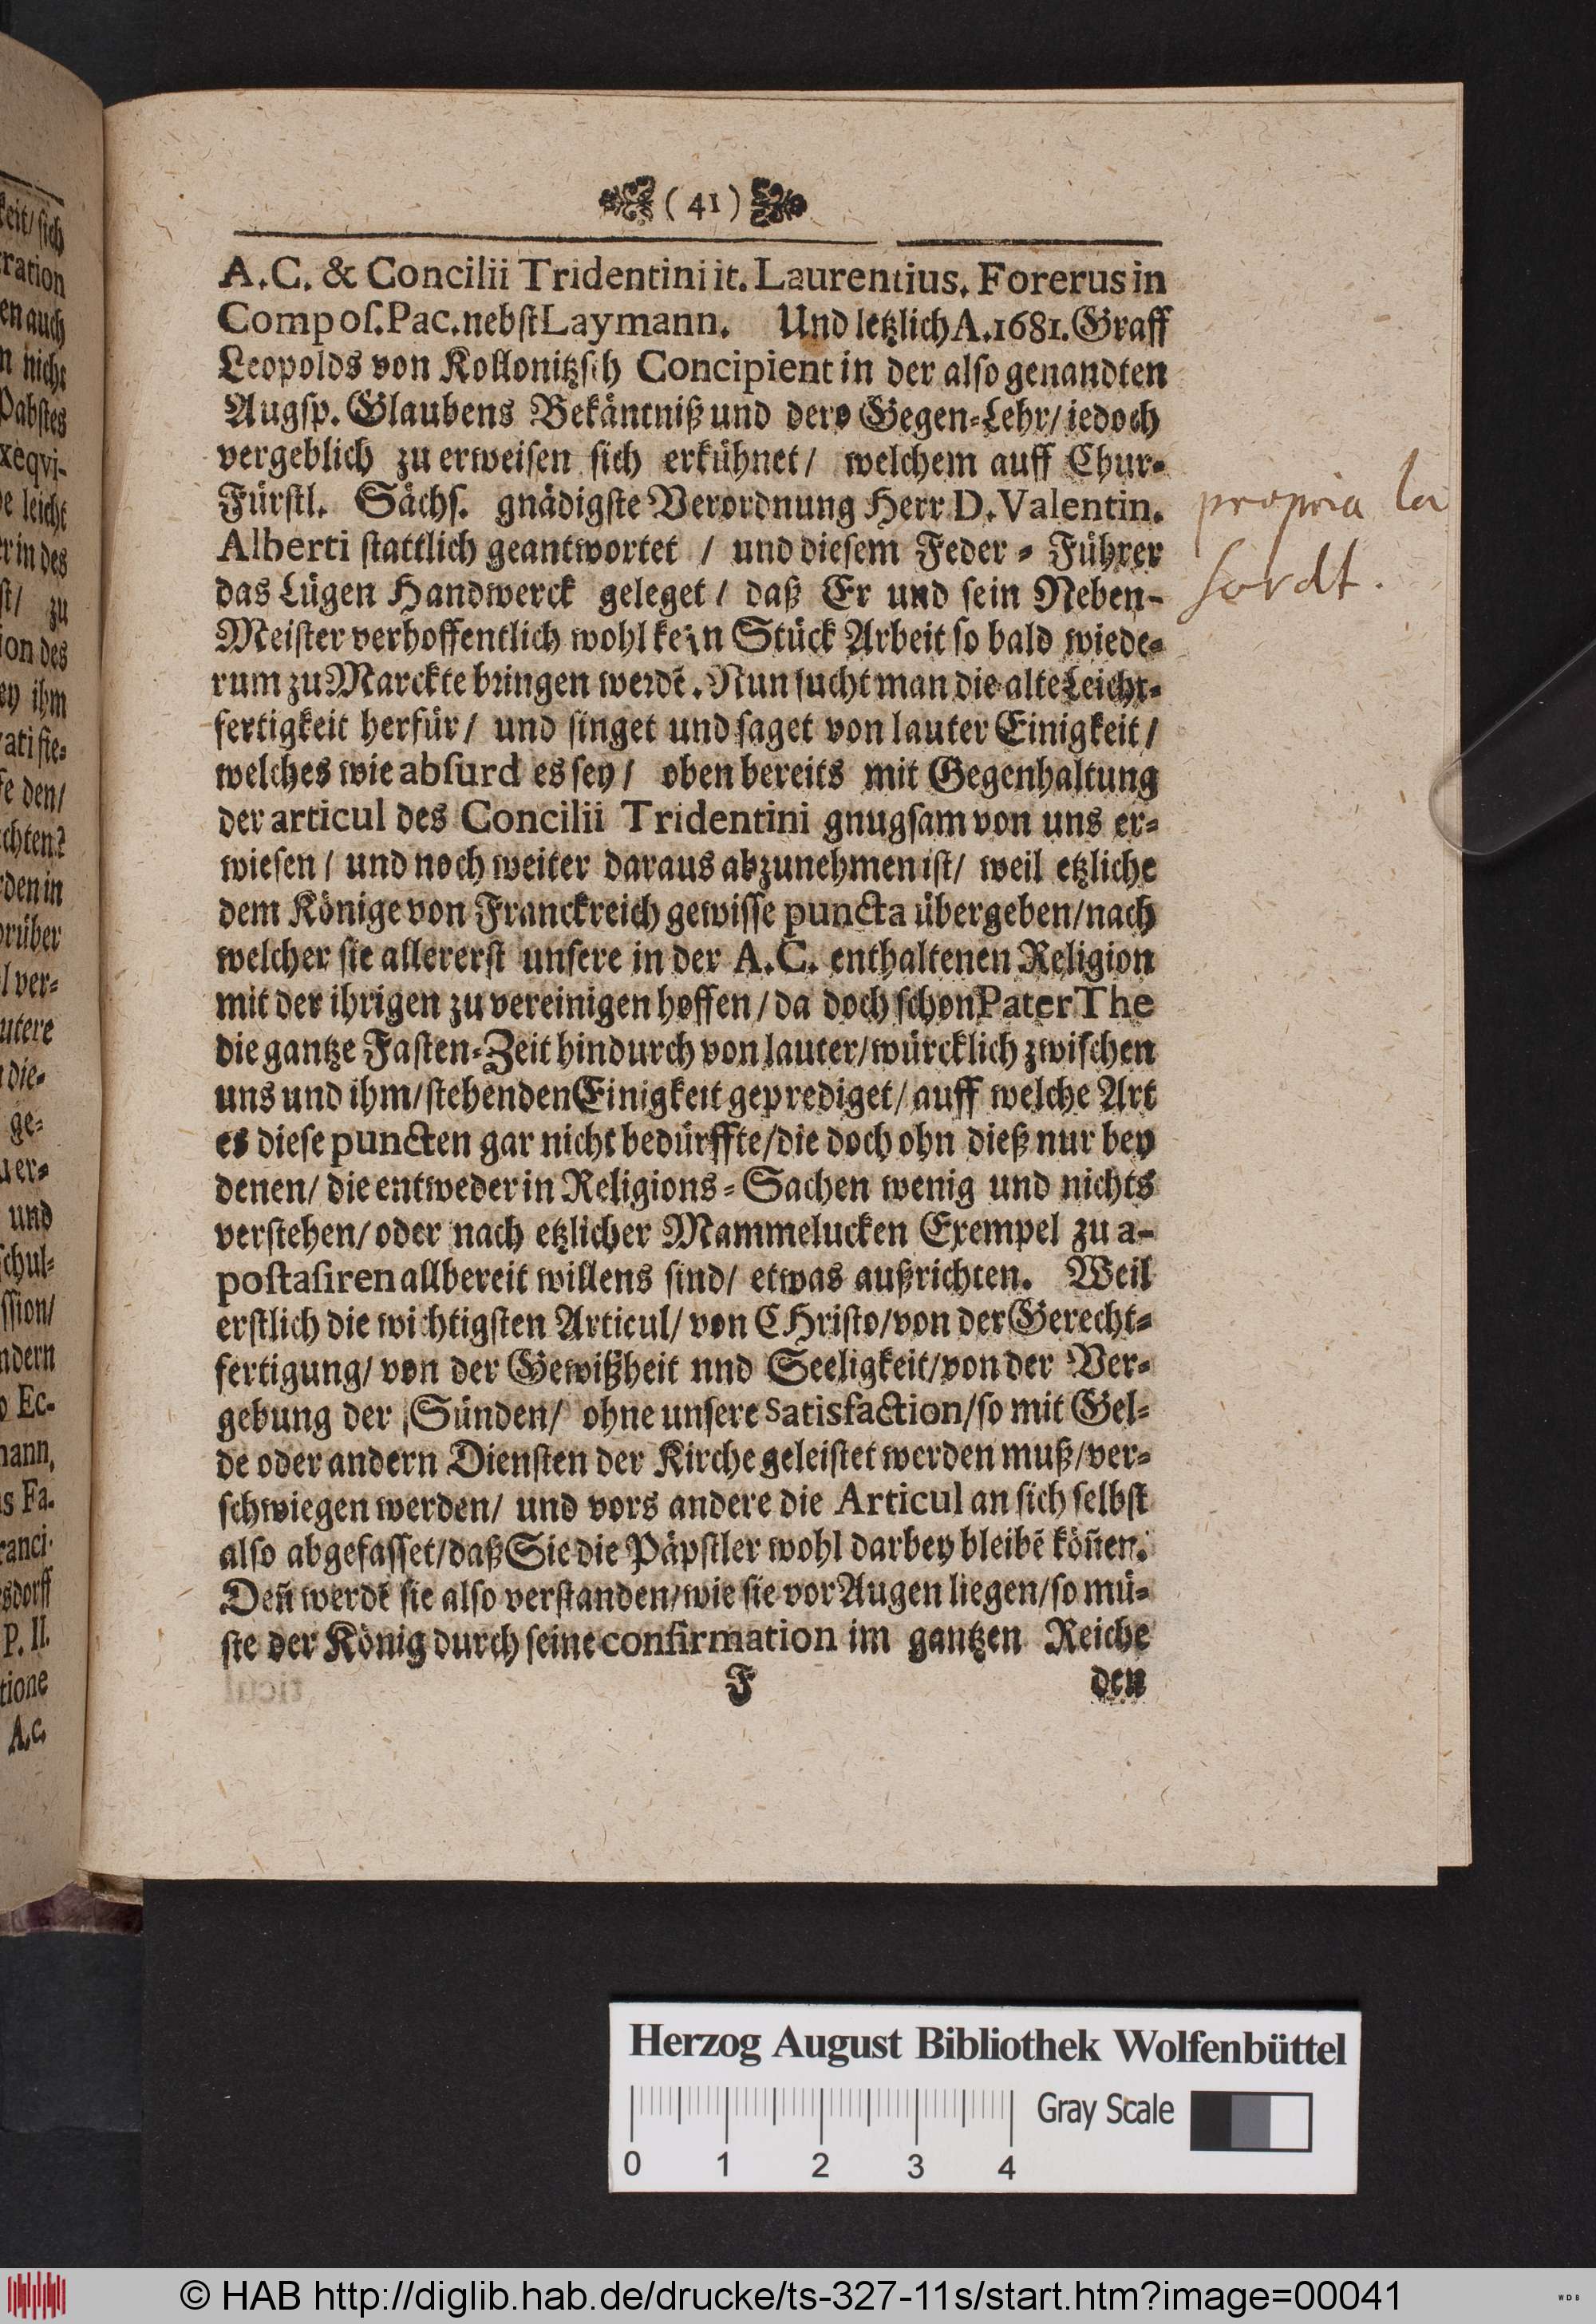 (41)
A.C. & Concilii Tridentini it. Laurentius. Forerus in
Compoſ. Pac. nebſt Laymann. Und letzlich A. 1681. Graff
Leopolds von Kollonitzſch Concipient in der alſo genandten
Augſp. Glaubens Bekäntniß und dero Gegen-Lehr/ iedoch
vergeblich zu erweiſen ſich erkühnet/ welchem auff Chur-
Fürſtl. Sächſ. gnädigſte Verordnung Herr D. Valentin.
Alberti ſtattlich geantwortet / und dieſem Feder-Führer
das Lügen Handwerck geleget / daß Er und ſein Neben-
Meiſter verhoffentlich wohl kein Stück Arbeit ſo bald wiede-
rum zu Marckte bringen werdẽ. Nun ſucht man die alte Leicht-
fertigkeit herfür/ und ſinget und ſaget von lauter Einigkeit/
welches wie abſurd es ſey/ oben bereits mit Gegenhaltung
der articul des Concilii Tridentini gnugſam von uns er-
wieſen/ und noch weiter daraus abzunehmen iſt/ weil etzliche
dem Könige von Franckreich gewiſſe puncta übergeben/ nach
welcher ſie allererſt unſere in der A.C. enthaltenen Religion
mit der ihrigen zu vereinigen hoffen/ da doch ſchon Pater The
die gantze Faſten-Zeit hindurch von lauter/ würcklich zwiſchen
uns und ihm/ ſtehenden Einigkeit geprediget/ auff welche Art
es dieſe puncten gar nicht bedürffte/ die doch ohn dieß nur bey
denen/ die entweder in Religions-Sachen wenig und nichts
verſtehen/ oder nach etzlicher Mammelucken Exempel zu a-
poſtaſiren allbereit willens ſind/ etwas außrichten. Weil
erſtlich die wichtigſten Articul/ von CHriſto/ von der Gerecht-
fertigung/ von der Gewißheit nnd Seeligkeit/ von der Ver-
gebung der Sünden/ ohne unſere Satisfaction/ ſo mit Gel-
de oder andern Dienſten der Kirche geleiſtet werden muß/ ver-
ſchwiegen werden/ und vors andere die Articul an ſich ſelbſt
alſo abgefaſſet/ daß Sie die Päpſtler wohl darbey bleibẽ köñen.
Deñ werdẽ ſie alſo verſtanden/ wie ſie vor Augen liegen/ ſo mü-
ſte der König durch ſeine confirmation im gantzen Reiche
F den
propria la
sordt.
keit/ ſich
ration
en auch
n nicht
Pabſtes
xeqvi-
e leicht
er in des
ſt/ zu
ion des
ey ihm
ratifie-
fe den/
chten?
rden in
rüber
l ver-
utere
die-
ge-
er-
und
ſchul-
ſſion/
ndern
Ec-
mann,
s Fa-
ranci-
sdorff
P. II.
tione
A.C.
Herzog August Bibliothek Wolfenbüttel
Gray Scale
0 1 2 3 4
© HAB http://diglib.hab.de/drucke/ts-327-11s/start.htm?image=00041
WDB